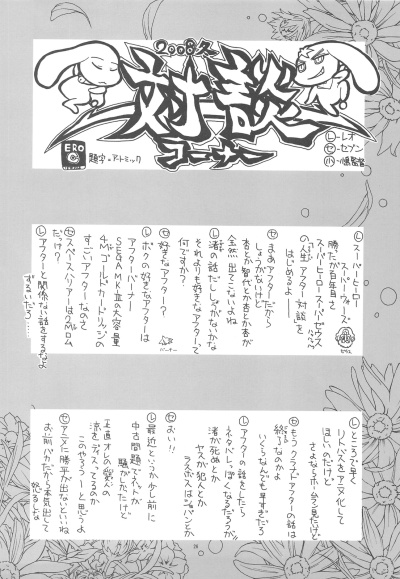 2008冬
対談
コーナー
ERO
C
題字。アートミック
Ⓛ-レオ
㋝-セブン
Ⓛスーパーヒーロー
スーパーウォーズ
勝たが百年目さ
スーパーヒーロースーパーゼウス
の人生アフター対談を
はじめるよー
ゼウス
㋝まあアフターだから
しょうがないけど
杏とか智代とか杏とか杏が
全然出てこないよね
Ⓛ渚の話だしょうがないかな
それよりも好きなアフターって
何ですか?
㋝好きなアフター?
Ⓛボクの好きなアフターは
アフターバーナー!
バーナー
SEGAMKⅢの大容量
4Mゴールドカートリッジの
すごいアフターなのさ
㋝スペースハリアーは2Mロム
だっけ?
Ⓛアフターと関係ない話をするなよ
ずるいだろ……
Ⓛところで早く
リトバスをアニメ化して
ほしいのだけど
さよならホームラン見たけど
㋝もうクラナドアフターの話は
終了なのかよ
いくらなんでも早すぎだろ
Ⓛアフターの話をしたら
ネタバレっぽくなるだろうが
渚が死ぬとか
ヤスが犯人とか
ラスボスはジャパンとか
㋝おい!!
Ⓛ最近というか少し前に
中古問題でネットが
騒がしかたけど
正直オレの嫁の
涼をディスってるのか
このやろうーと思うよ
㋝アニメに勝平が出ないといいね
お前バカだから本気出して
怒るしな